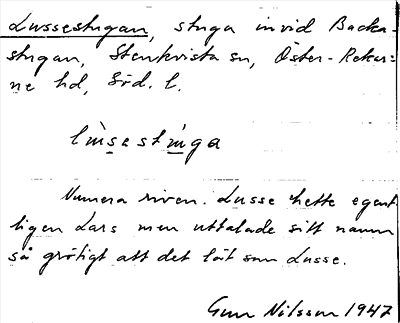 Lussestugan, stuga invid Backa-
stugan, Stenkvista sn, Öster-Rekar=
ne hd, Söd. l.
Numera riven. Lusse hette egent
ligen Lars men uttalade sitt namn
så grötigt att det lät som Lusse.
Gun Nilsson 1947